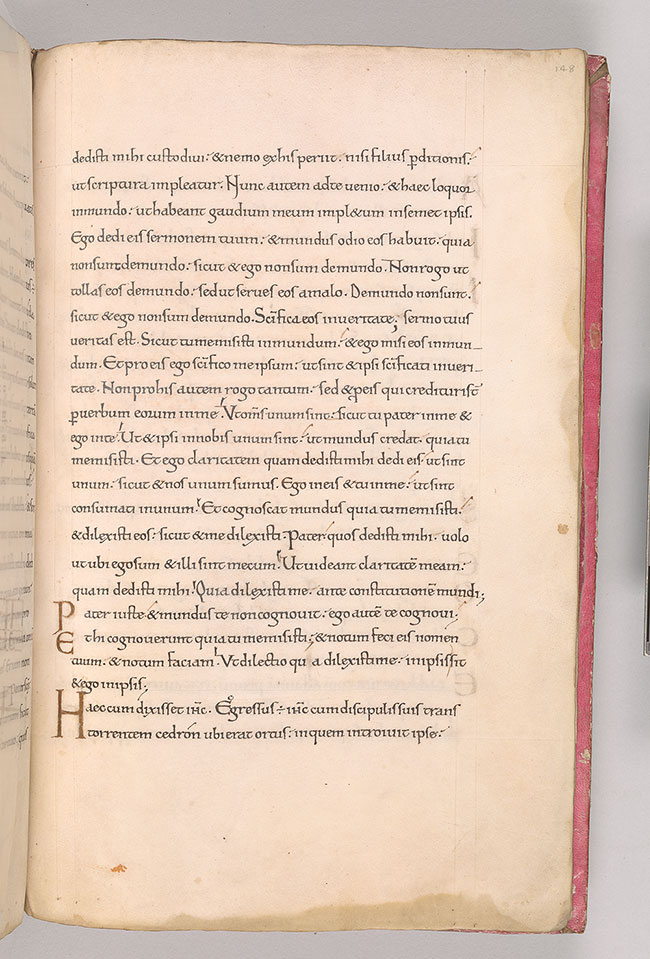 148
dedisti mihi custodivi: & nemo ex his periit. nisi filius pditionis.
ut scriptura impleatur. Nunc autem ad te venio. & haec loquor
in mundo. ut habeant gaudium meum impl&um in semet ipsis.
Ego dedi eis sermonem tuum. & mundus odio eos habuit. quia
non sunt de mundo. sicut & ego non sum de mundo. Non rogo ut
tollas eos de mundo. sed ut serves eos a malo. De mundo non sunt.
sicut & ego non sum de mundo. Scifica eos in veritate; sermo tuus
veritas est. Sicut tu me misisti in mundum. & ego misi eos in mun
dum. Et pro eis ego scifico me ipsum. ut sint & ipsi scificati in veri
tate. Non pro his autem rogo tantum. sed & p eis qui credituri st
p verbum eorum in me. Ut oms unum sint. sicut tu pater in me &
ego in te. Ut & ipsi in nobis unum sint. ut mundus credat. quia tu
me misisti. Et ego claritatem quam dedisti mihi dedi eis. ut sint
unum. sicut & nos unum sumus. Ego in eis & tu in me. ut sint
consumati in unum. Et cognoscat mundus quia tu me misisti.
& dilexisti eos. sicut & me dilexisti. Pater quos dedisti mihi. volo
ut ubi ego sum & illi sint mecum. Ut videant claritatē meam.
quam dedisti mihi. Quia dilexisti me. ante constitutionē mundi;
Pater iuste & mundus te non cognovit. ego autē te cognovi.
Et hi cognoverunt quia tu me misisti; & notum feci eis nomen
tuum. & notum faciam. Ut dilectio qu a dilexisti me. in ipsis sit
& ego in ipsis;
Haec cum dixisset ihc. Egressus ÷ ihc cum discipulis suis trans
torrentem cedrón ubi erat ortus. in quem introivit ipse.